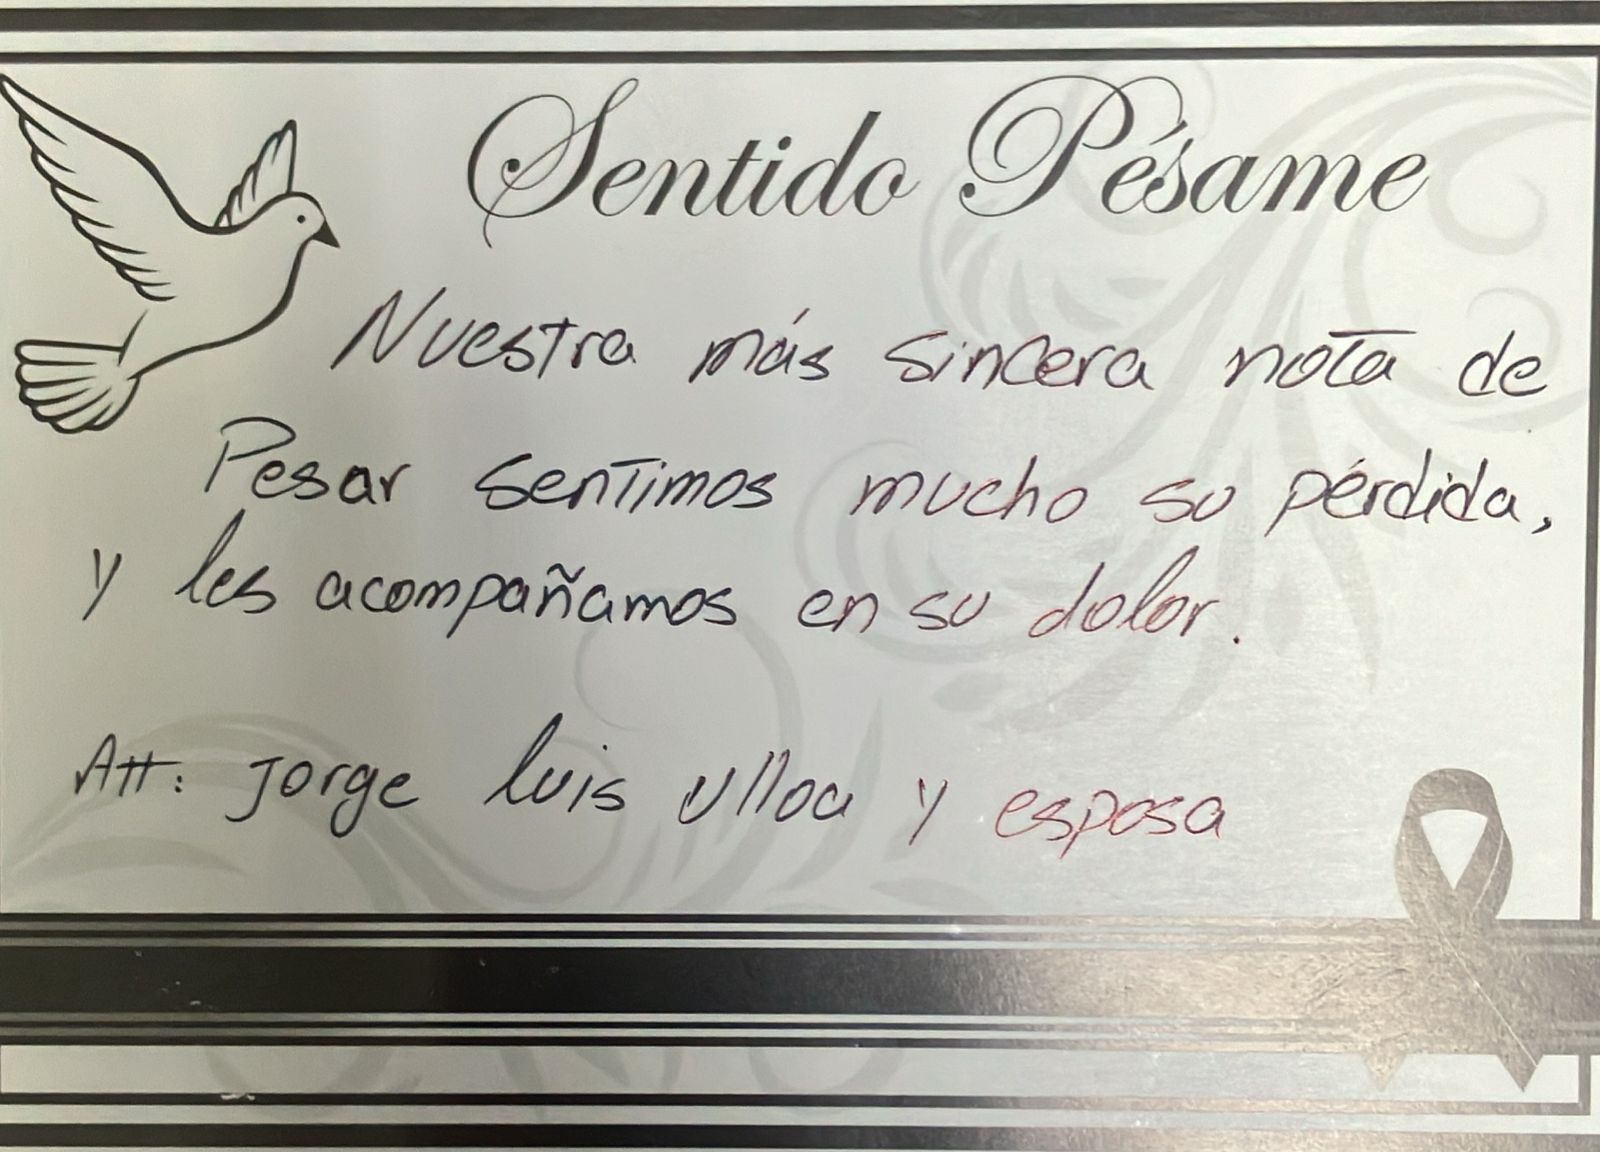 Sentido Pésame
Nuestra más sincera nota de
Pesar sentimos mucho su pérdida,
y les acompañamos en su dolor.
Att: Jorge luis Ulloa y esposa